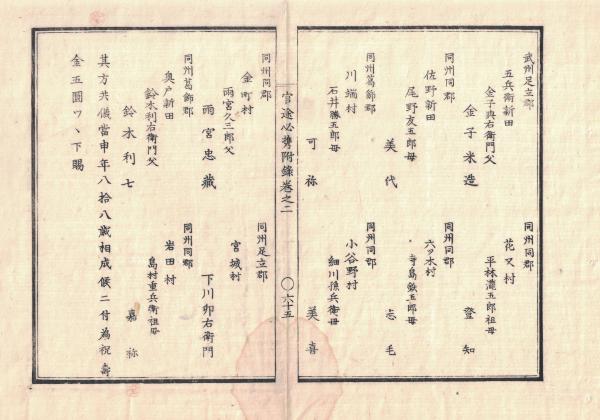 武州足立郡
五兵衛新田
金子與右衛門父
金子米造
同州同郡
花又村
平林瀧五郎祖母
登知
同州同郡
佐野新田
尾野友五郎母
美代
同州同郡
六ツ木村
寺島鉄五郎母
志毛
同州葛飾郡
川端村
石井勝五郎母
可祢
同州同郡
小谷野村
細川孫兵衛母
美喜
官途必携附錄卷之二
〇六十五
同州同郡
金町村
雨宮久三郎父
雨宮忠藏
同州足立郡
宮城村
下川卯右衛門
同州葛飾郡
奥戸新田
鈴木利右衛門父
鈴木利七
同州同郡
岩田村
島村重兵衛祖母
嘉祢
其方共儀當申年八拾八歳相成候ニ付為祝壽
金五圓ツヽ下賜